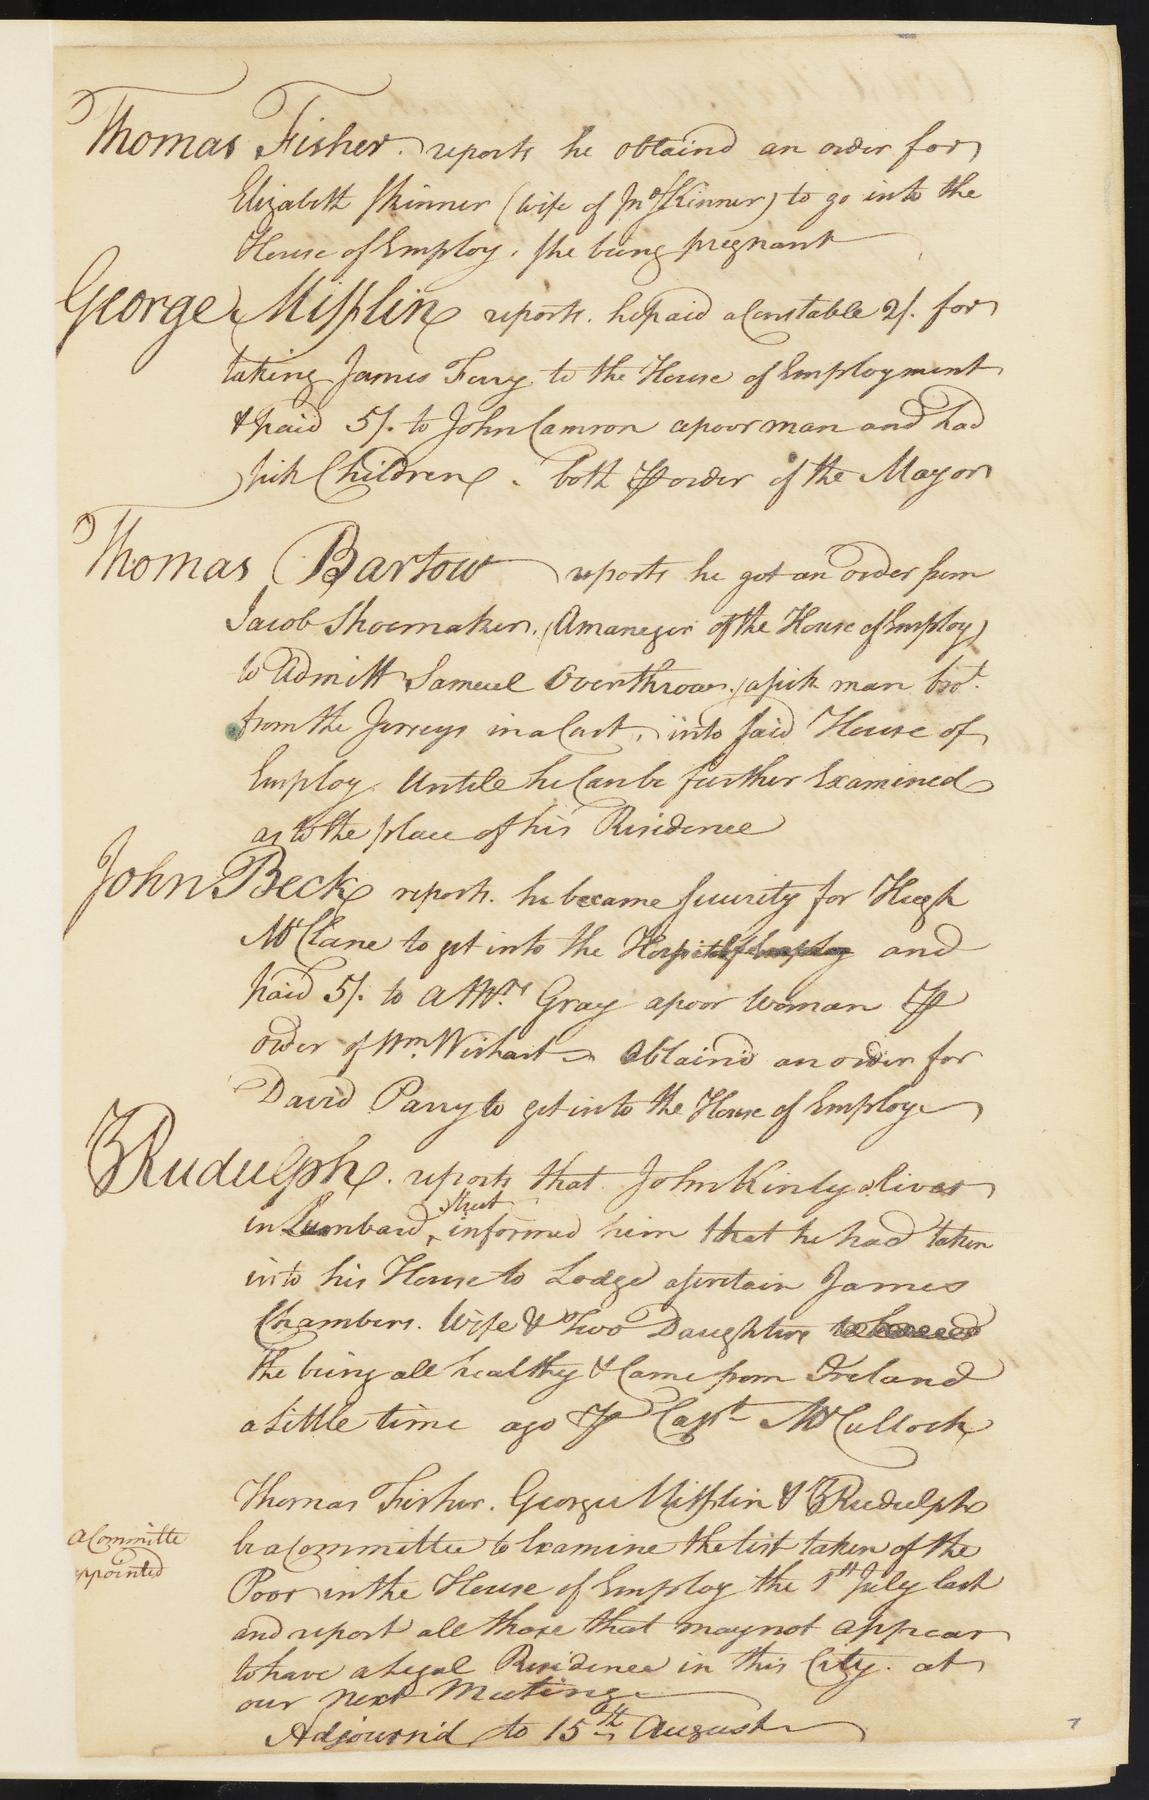 Thomas Fisher. reports he obtaind an order for
Elizabeth Skinner (wife of Jno Skinner) to go into the
House of Employ. She being pregnant
George Mifflin reports. he paid a Constable 2/. for
taking James Ferry to the House of Employment
& paid 5/. to John Camron a poor man and had
Sick Children. both ⅌ order of the Mayor
Thomas Bartow reports he got an order from
Jacob Shoemaker. (A maneger of the House of Employ)
to Admitt Samuel Overthrow. a sick man brot.
from the Jerseys in a Cart, into said House of
Employ. Untile he Can be further Examined
as to the place of his Residence
John Beck reports. he became Security for Hugh
McClane to get into the Hospital and
paid 5/. to a Mrs. Gray a poor woman ⅌
order of Wm. Wishart Obtain'd an order for
David Parry to get into the House of Employ
Z Rudulph. reports that John Kinly lives
in Lumbard street informed him that he had taken
into his House to Lodge a sertain James
Chambers. Wife & Two Daughters
the being all healthy & Came from Ireland
a Little time ago ⅌ Capt. McCullock
Thomas Fisher. George Mifflin & Z Rudulph
be a Committee to Examine the list taken of the
Poor in the House of Employ the 1st July last
and report all those that may not appear
to have a Legal Residence in this City. at
our next Meeting
Adjourn'd to 15th August
a Committe
appointed
7